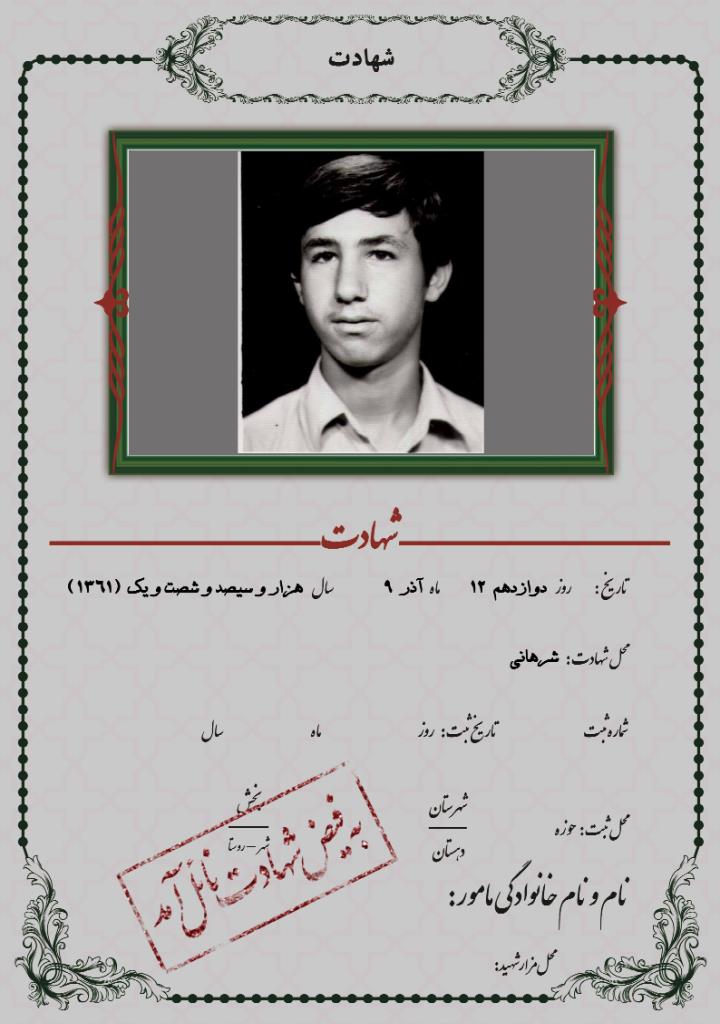 شهادت
شهادت
تاریخ: روز دوازدهم ۱۲ ماه آذر ۹ سال هزار و سیصد و شصت و یک (۱۳۶۱)
محل شهادت: شرهانی
شماره ثبت تاریخ ثبت: روز ماه سال
محل ثبت: حوزه شهرستان بخش
دهستان شهر-روستا
به فیض شهادت نائل آمد
نام و نام خانوادگی مامور:
محل مزار شهید: